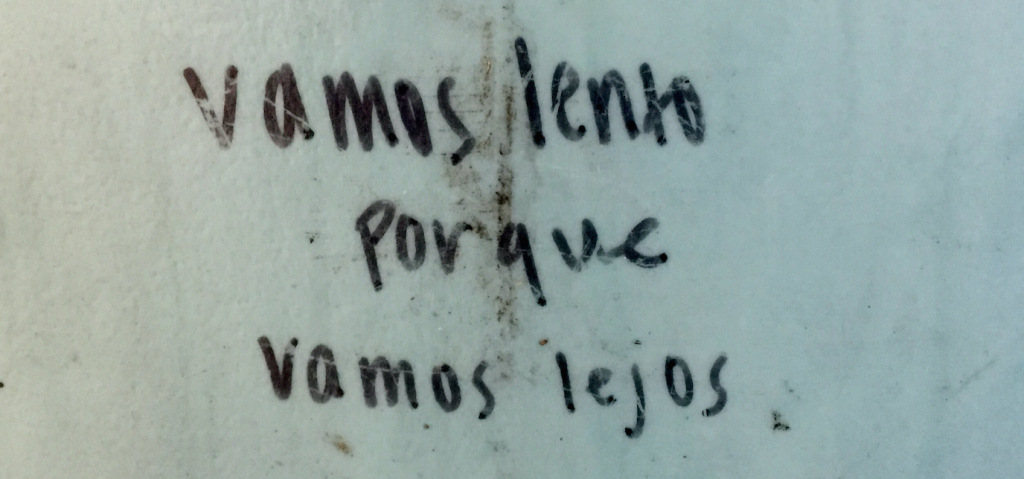 vamos lento
porque
vamos lejos